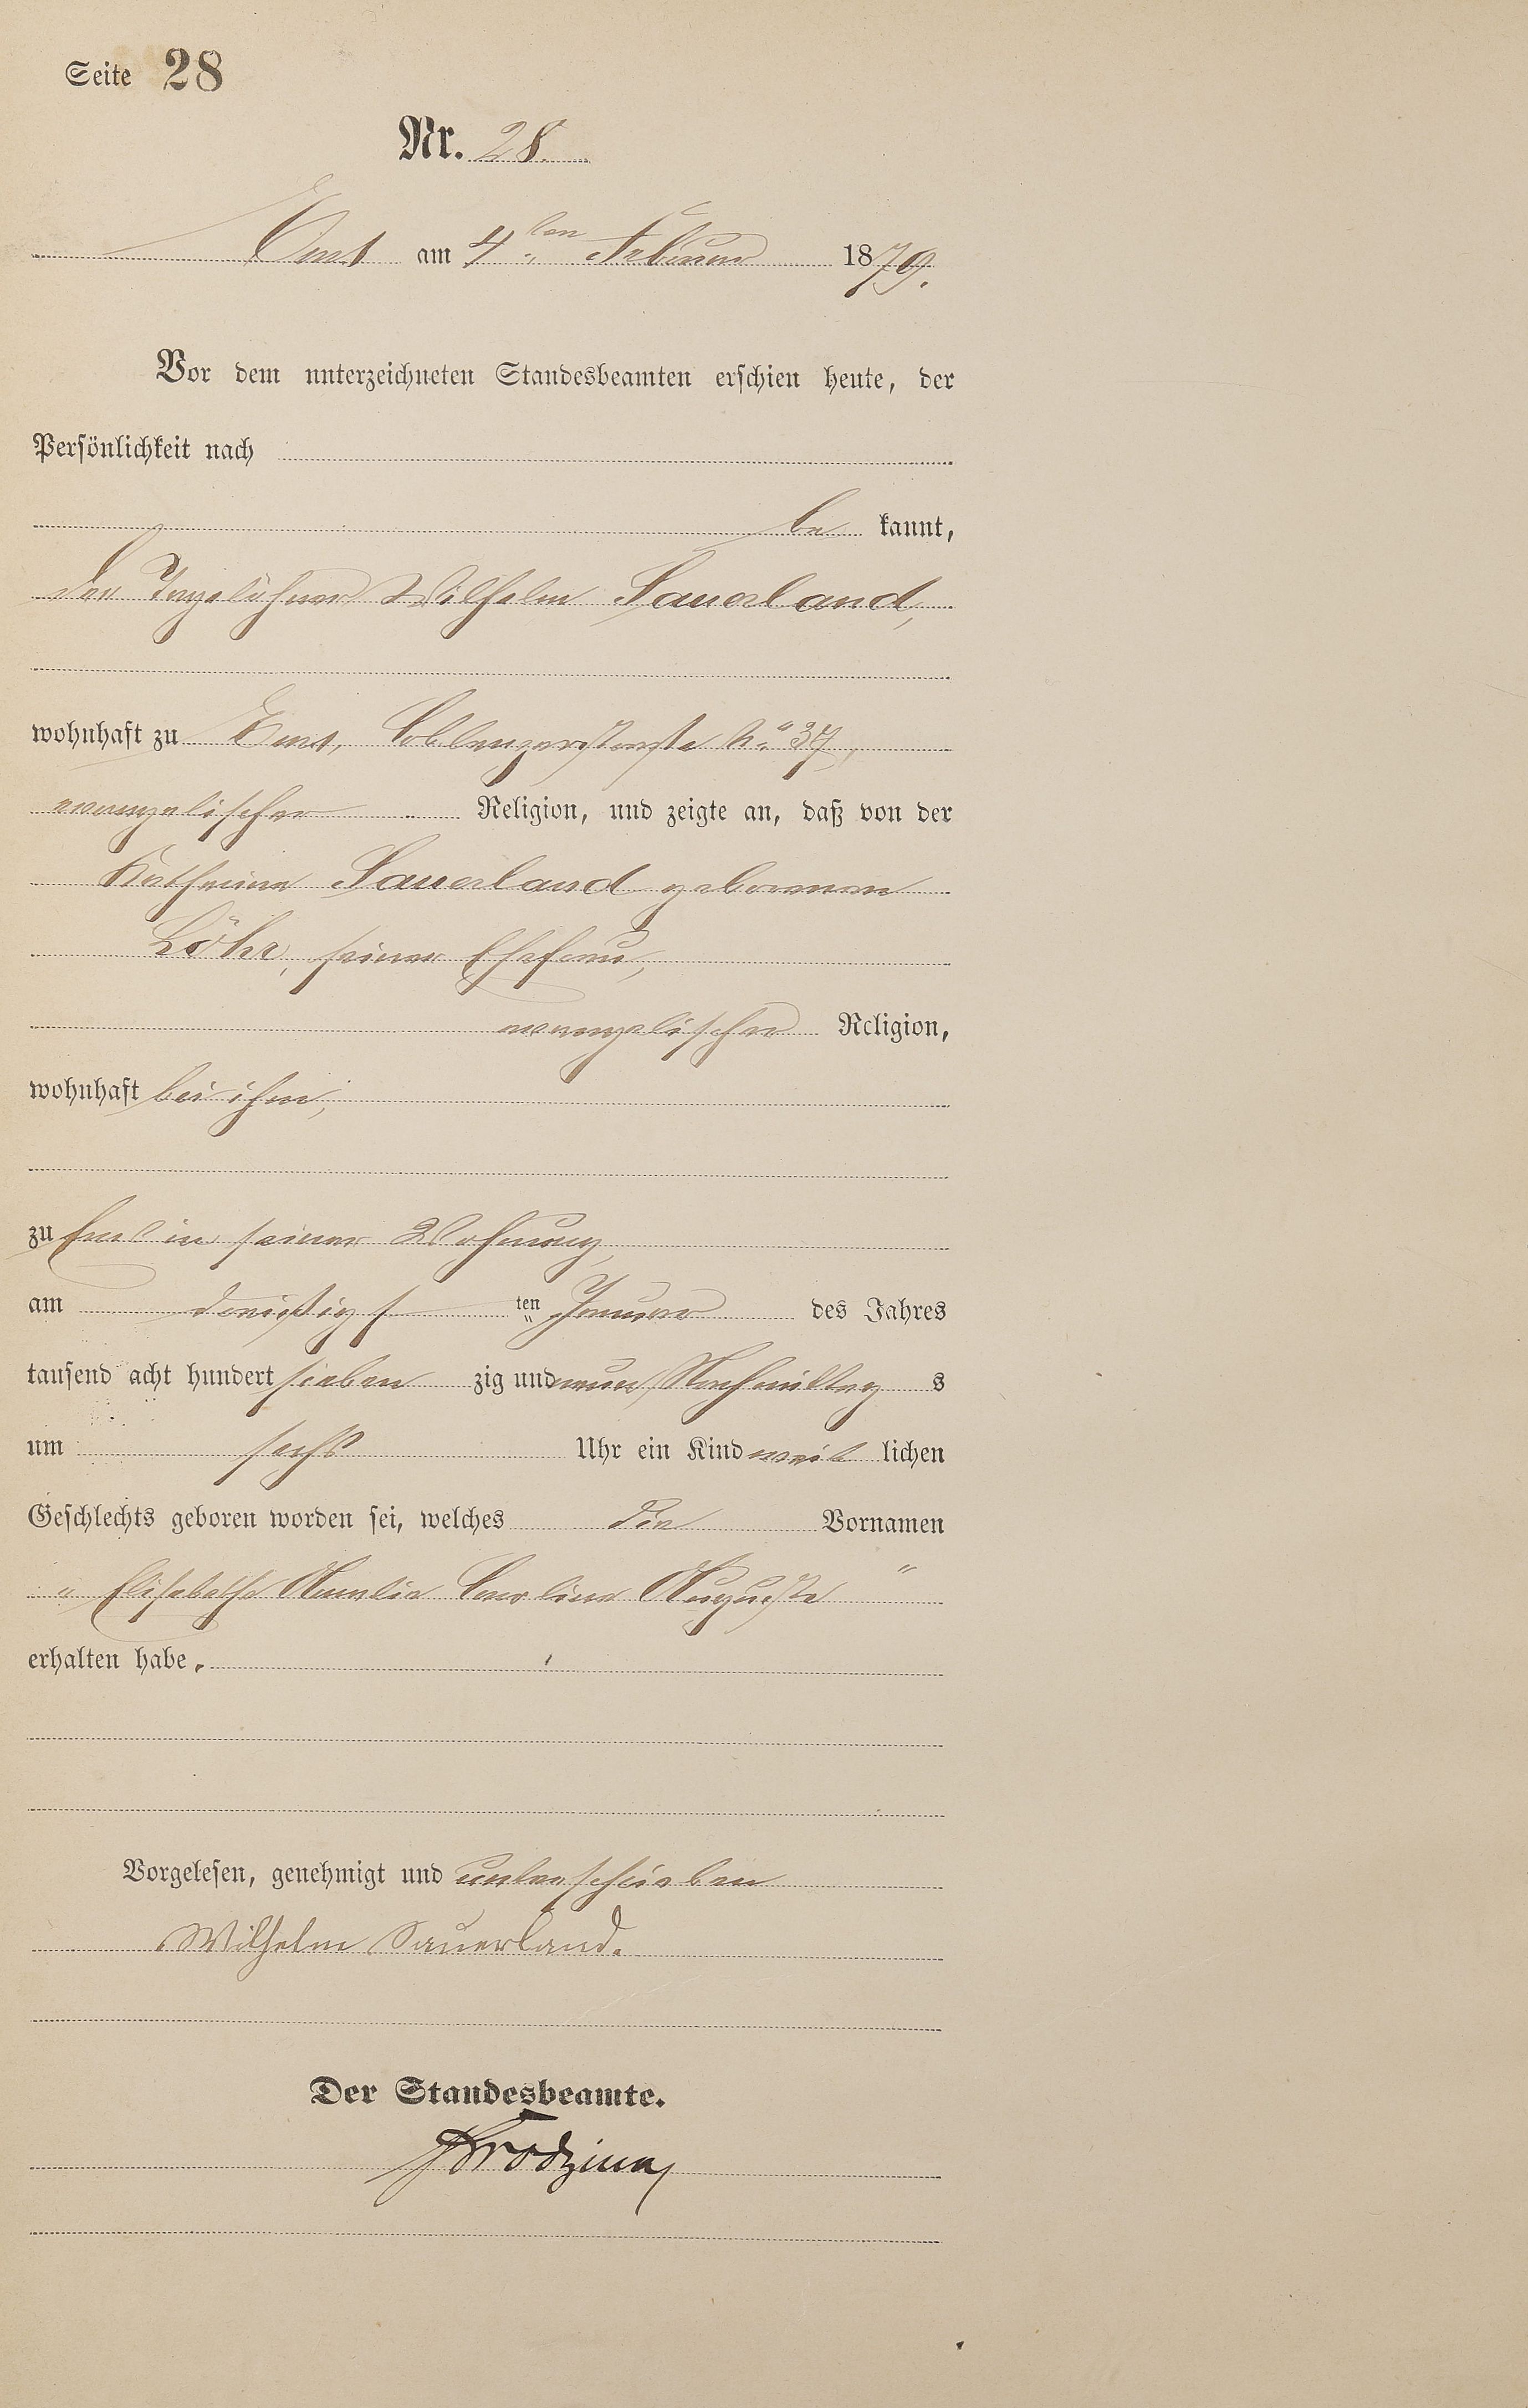 Seite 28
Nr. 28.
Ems am 4ten Februar 1879.
Vor dem unterzeichneten Standesbeamten erschien heute, der
Persönlichkeit nach
be kannt,
der Tagelöhner Wilhelm Sauerland,
wohnhaft zu Ems, Coblenzerstraße No 37,
evangelischer Religion, und zeigte an, daß von der
Katharina Sauerland geborenen
Löhr, seiner Ehefrau,
evangelischer Religion,
wohnhaft bei ihm,
zu Ems in seiner Wohnung,
am dreißigs ten Januar des Jahres
tausend acht hundert sieben zig und neun Nachmittag s
um sechs Uhr ein Kind weib lichen
Geschlechts geboren worden sei, welches die Vornamen
" Elisabetha Amalia Carolina Auguste "
erhalten habe.
Vorgelesen, genehmigt und unterschrieben
Wilhelm Sauerland.
Der Standesbeamte.